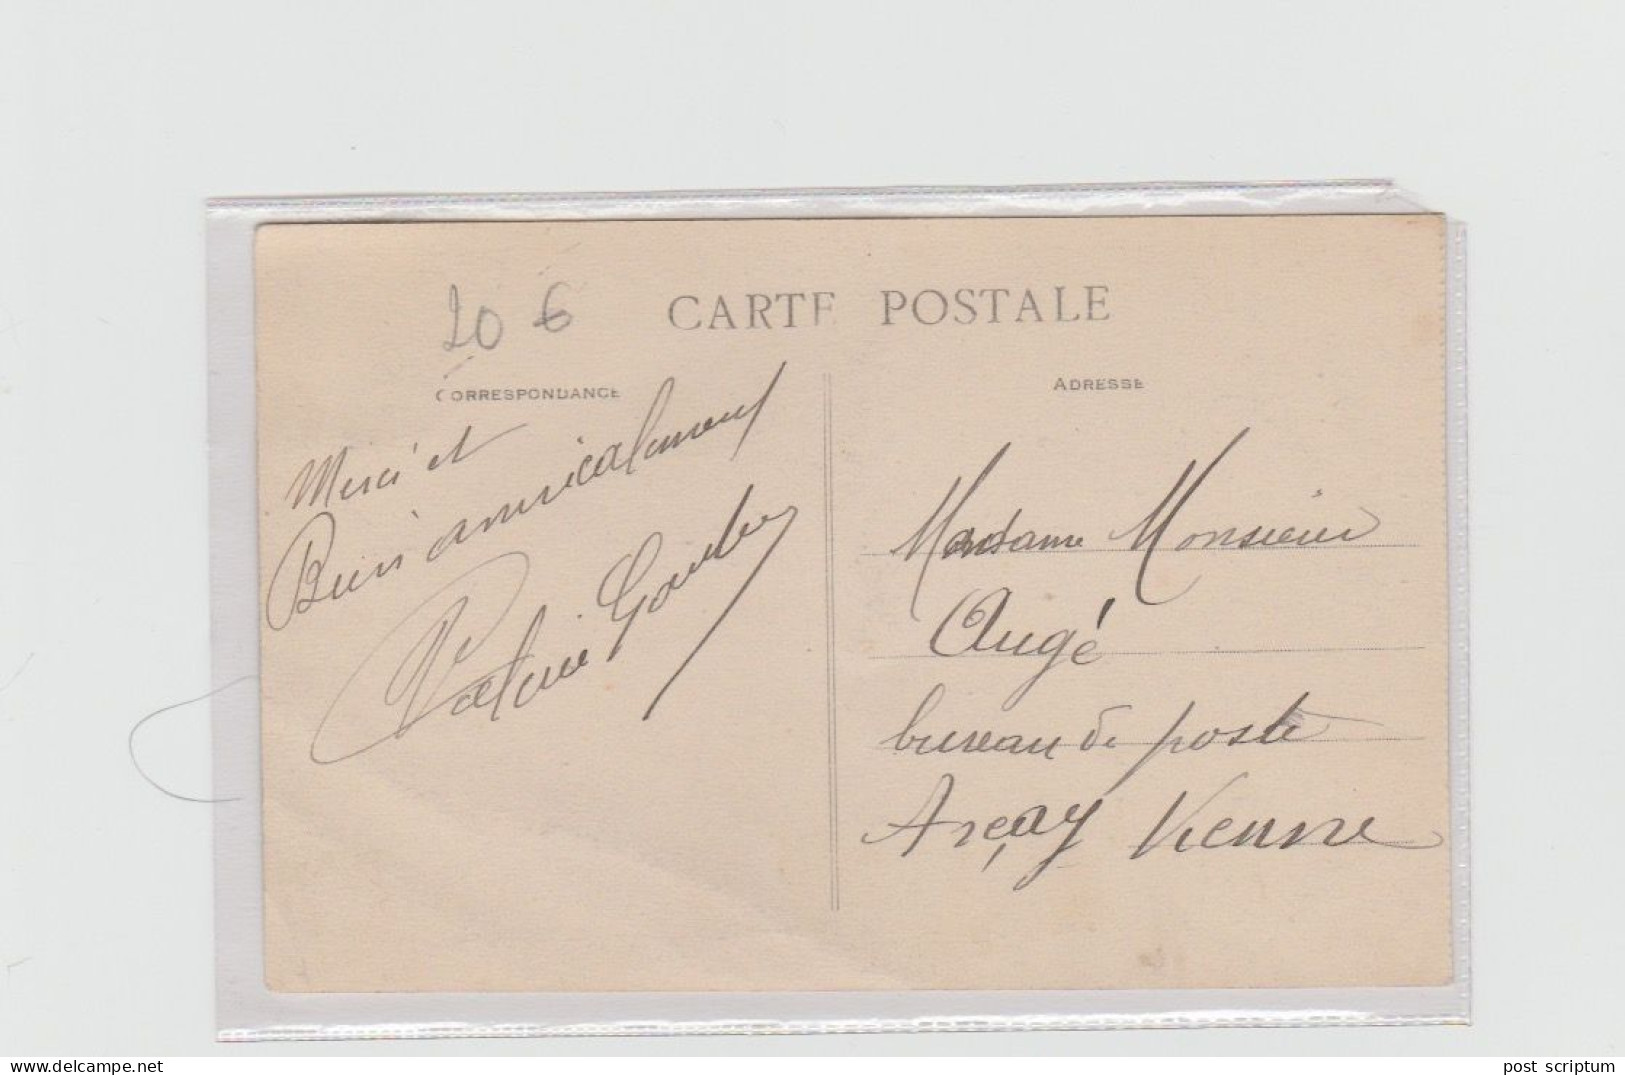 20 €
CARTE POSTALE
CORRESPONDANCE
ADRESSE
Merci et
Bien amicalement
Valérie
Madame Monsieur
Augé
bureau de poste
Arçay Vienne
www.delcampe.net
post_scriptum